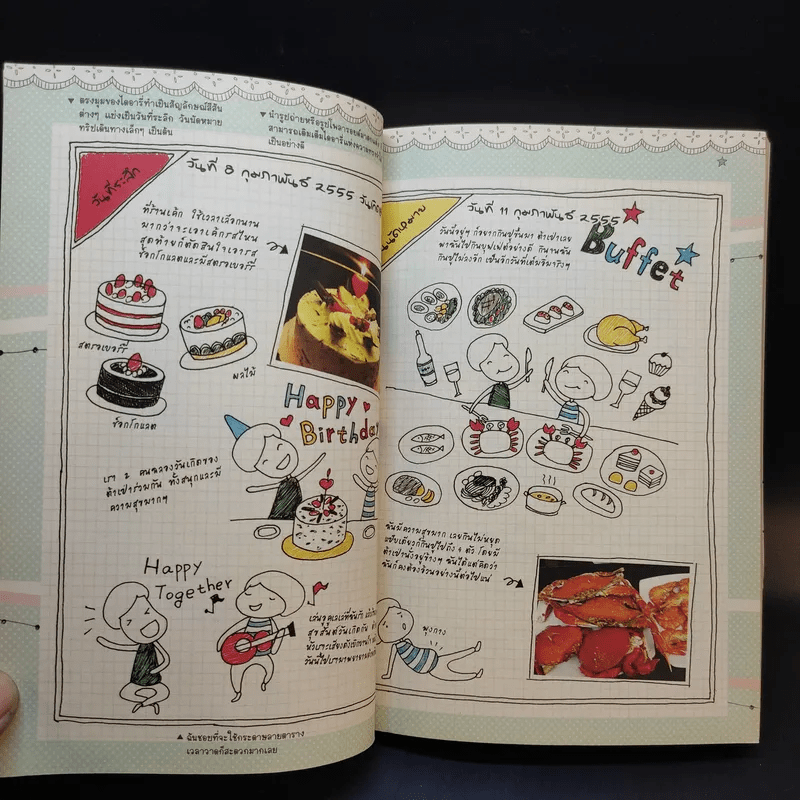 ▼ ตรงมุมของไดอารี่ทำเป็นสัญลักษณ์สีสัน
ต่างๆ แบ่งเป็นวันที่ระลึก วันนัดหมาย
ทริปเดินทางเล็กๆ เป็นต้น
▼ นำรูปถ่ายหรือรูปโพลารอยด์มาตกแต่ง
สามารถเติมเต็มไดอารี่แห่งความทรงจำ
เป็นอย่างดี
วันที่ระลึก
วันที่ 8 กุมภาพันธ์ 2555
ที่ร้านเค้ก ใช้เวลาเลือกนาน
มากว่าจะเอาเค้กรสไหน
สุดท้ายก็ตัดสินใจเอารส
ช็อกโกแลตและมีสตรอเบอร์รี่
สตรอเบอร์รี่
ผลไม้
ช็อกโกแลต
Happy
Birthday
เรา 2 คนฉลองวันเกิดของ
ต้าเปาร่วมกัน ทั้งสนุกและมี
ความสุขมากๆ
Happy
Together
เล่นอูคูเลเล่ที่ฉันรัก
สุขสันต์วันเกิดกัน
▲ ฉันชอบที่จะใช้กระดาษลายตาราง
เวลาวาดก็สะดวกมากเลย
นัดหมาย
วันที่ 11 กุมภาพันธ์ 2555
Buffet
วันนี้อยู่ๆ ก็อยากกินปูขึ้นมา ต้าเปาเลย
พาฉันไปกินบุฟเฟต์อย่างดี กินจนฉัน
กินปูไม่ลงอีก เป็นอีกวันที่เต็มอิ่มจริงๆ
ฉันมีความสุขมาก เลยกินไม่หยุด
แป๊บเดียวก็กินปูไปถึง 4 ตัว โดยมี
ต้าเปานั่งอยู่ข้างๆ ฉันได้แต่คิดว่า
ฉันก็คงต้องอ้วนอย่างนี้ต่อไปแน่
พุงกาง